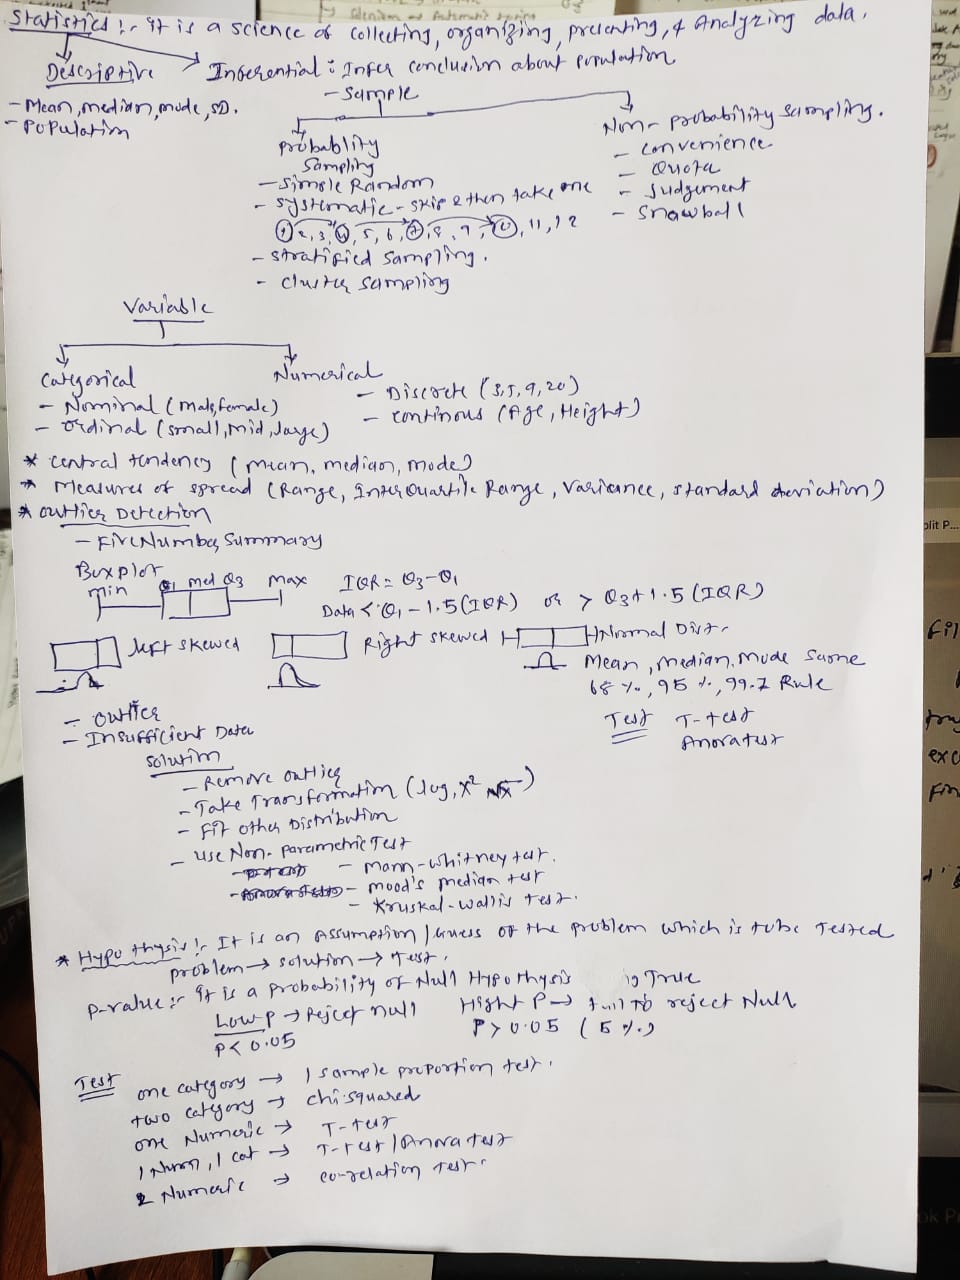 Statistics :- It is a science of collecting, organizing, presenting, & Analyzing data.
Descriptive
Inferential : Infer conclusion about population
- Mean, median, mode, SD.
- Population
- Sample
Probablity
Sampling
- Simple Random
- Systematic - skip 2 then take one
1, 2, 3, 4, 5, 6, 7, 8, 9, 10, 11, 12
- Stratified Sampling.
- Cluster Sampling
Non-probability Sampling.
- Convenience
- Quota
- Judgement
- Snowball
Variable
Categorical
- Nominal (Male, female)
- Ordinal (small, Mid, large)
Numerical
- Discrete (3, 5, 9, 20)
- Continous (Age, Height)
* Central tendency (mean, median, mode)
* Measures of spread (Range, InterQuartile Range, Variance, standard deviation)
* Outlier Detection
- Five Number Summary
Boxplot
min Q1 med Q3 max
IQR = Q3-Q1
Data < Q1 - 1.5(IQR) or > Q3+1.5(IQR)
left skewed
Right skewed
Normal Distr.
Mean, Median, Mode Same
68%, 95%, 99.7 Rule
Test T-test
Anova test
- Outlier
- Insufficient Data
Solution
- Remove outlier
- Take Transformation (log, x² √x)
- Fit other Distribution
- Use Non-parametric Test
- Mann-Whitney test.
- Mood's median test
- Kruskal-Wallis test.
* Hypothysis :- It is an Assumption / Guess of the problem which is to be Tested
problem → solution → Test.
P-value :- It is a probability of Null Hypothysis is True
Low P → Reject null
P < 0.05
Hight P → fail to reject Null
P > 0.05 (5%)
Test
one category → 1 sample proportion test.
two category → chi-squared
one Numeric → T-test
1 Num, 1 cat → T-test / Anova test
2 Numeric → co-relation test.